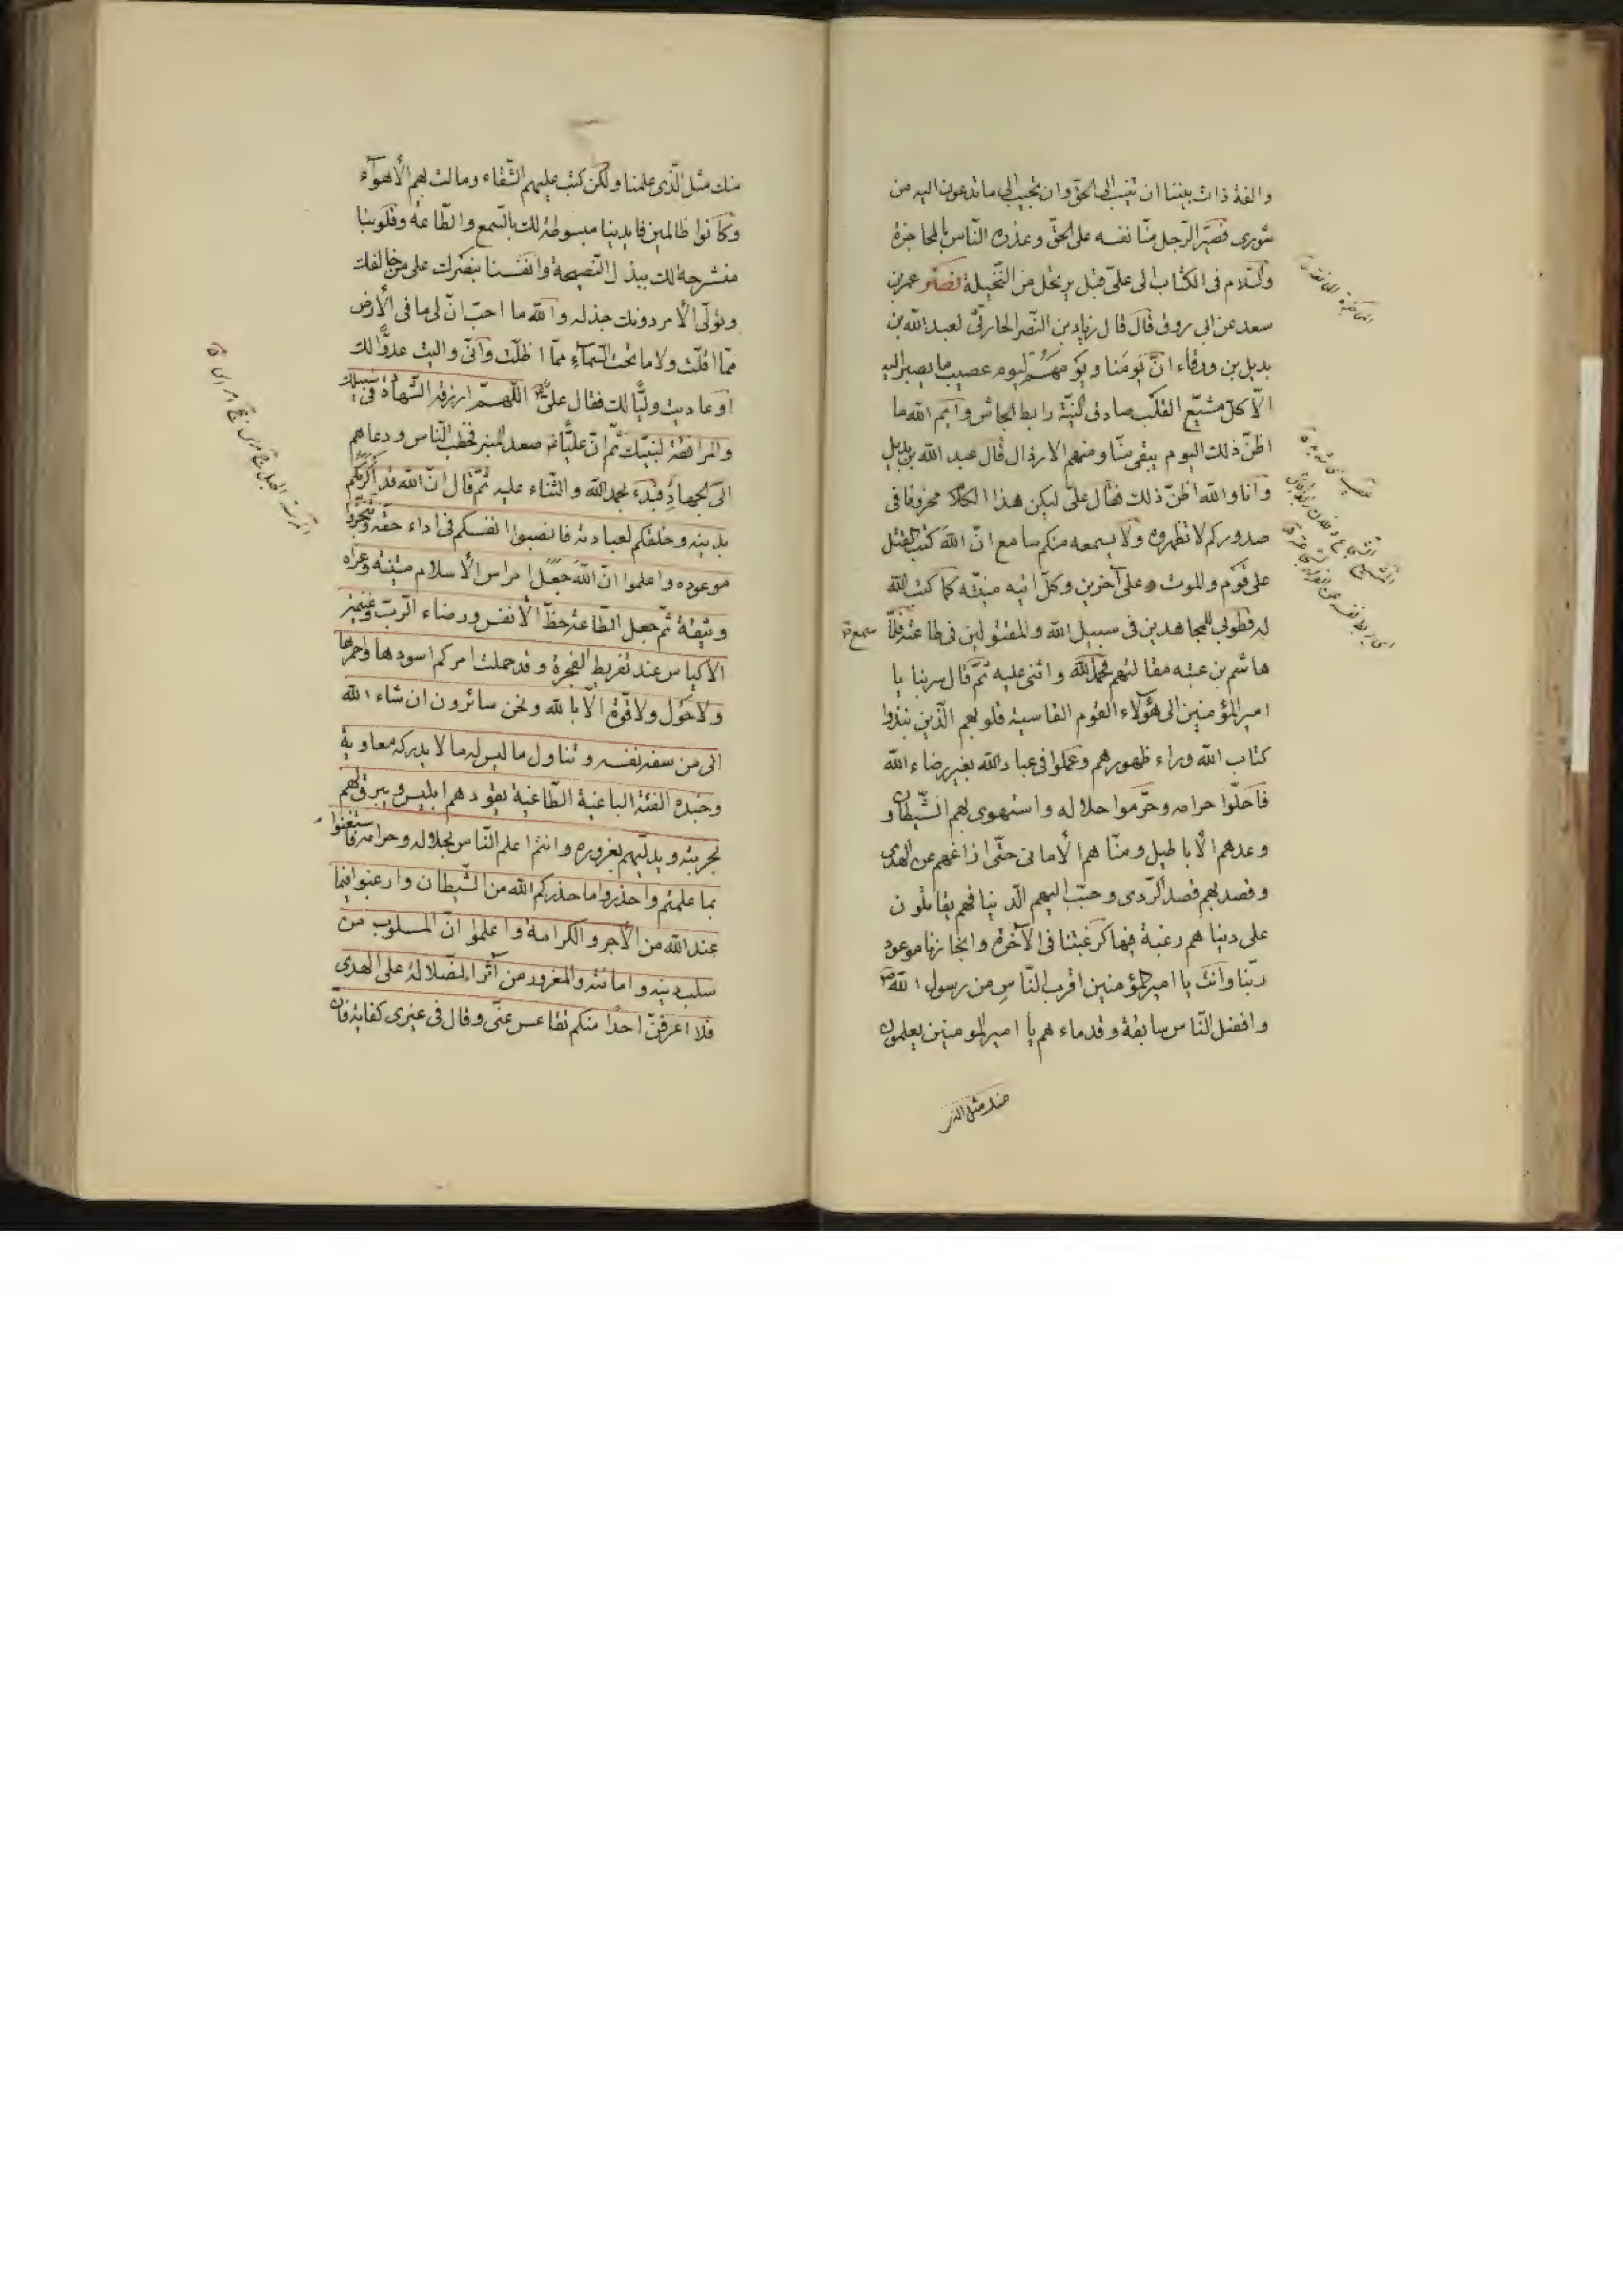 والفة ذات بيننا ان تنيب الى الحق وان تجيب الى ما تدعون اليه من
شورى فصير الرجل منا نفسه على الحق وعذره الناس بالمحاجزة
والسلام فى الكتاب الى على قبل يرتحل من النخيلة نصر عمر بن
سعد عن ابى روق قال قال زياد بن النضر الحارثى لعبد الله بن
بديل بن ورقاء انّ يومَنا ويومهُم ليوم عصيب ما يصبر اليه
الّا كل مشيّع القلب صادق النيّة رابط الجاش وايم الله ما
اظنّ ذلك اليوم يبقى منّا ومنهم الا رذال قال عبد الله بن بديل
وانا والله اظنّ ذلك فقال علىّ ليكن هذا الكلام مخزونا فى
صدوركم لا تظهروه ولا يسمعه منكم سامع انّ الله كتب القتل
على قوم والموت على آخرين وكلّ اتيه منيّته كما كتب الله
له فطوبى للمجاهدين فى سبيل الله والمقتولين فى طاعته فلمّا سمع
هاشم بن عتبه مقالتهم فحمد الله واثنى عليه ثمّ قال سر بنا يا
امير المؤمنين الى هؤلاء القوم القاسية قلوبهم الّذين نبذوا
كتاب الله وراء ظهورهم وعملوا فى عباد الله بغير رضاء الله
فاحلّوا حرامه وحرّموا حلاله واستهوى بهم الشّيطان و
وعدهم الأباطيل ومنّاهم الأمانى حتّى ازاغهم عن الهدى
وقصد بهم قصد الرّدى وحبّب اليهم الدّنيا فهم يقاتلون
على دنياهم رغبة فيها كرغبتنا فى الآخرة وانجازنا موعود
ربّنا وانت يا امير المؤمنين اقرب النّاسِ من رسول الله ص
وافضل النّاس سابقة وقدما وهم يا امير المومنين يعلمون
منك مثل الذى
منك مثل الّذى علمنا ولكن كتب عليهم الشّقاء ومالت بهم الأهواء
وكانوا ظالمين فايدينا مبسوطة لك بالسّمع والطّاعة وقلوبنا
منشرحة لك ببذل النّصيحة وانفسنا بنصرك على من خالفك
وتولّى الأمر دونك جذلة والله ما احبّ انّ لى ما فى الأرض
ممّا اقلّت ولا ما تحت السّماء ممّا اظلّت وانّى واليت عدوّا لك
او عاديت وليّا لك فقال علىّ اللّهمّ ارزقه الشّهادة فى سبيلك
والمرافقة لنبيّك ثمّ انّ عليّا صعد المنبر فخطب النّاس ودعاهم
الى الجهاد فبدء بحمد الله والثّناء عليه ثمّ قال انّ الله قد اكرمكم
بدينه وخلقكم لعبادته فانصبوا انفسكم فى اداء حقّه وتنجّزوا
موعوده واعلموا انّ الله جعل امراس الأسلام متينة وعراه
وثيقة ثمّ جعل الطّاعة حظّ الأنفس ورضاء الرّبّ وغنيمة
الاكياس عند تفريط الفجرة وقد حملت امركم اسودها واحمرها
ولا حول ولا قوّة الّا بالله ونحن سائرون ان شاء الله
الى من سفه نفسه وتناول ما ليس له وما لا يدركه معاوية
وجنده الفئة الباغية الطّاغية يقودهم ابليس ويبرق لهم
ببرقه ويدلّيهم بغروره وانتم اعلم النّاس بحلاله وحرامه فاستغنوا
بما علمتم واحذروا ما حذركم الله من الشّيطان وارغبوا فيما
عند الله من الأجر والكرامة واعلموا انّ المسلوب من
سلب دينه وامانته والمغرور من آثر الضّلالة على الهدى
فلا اعرفنّ احدا منكم تقاعس عنّى وقال فى غيرى كفاية فانّ